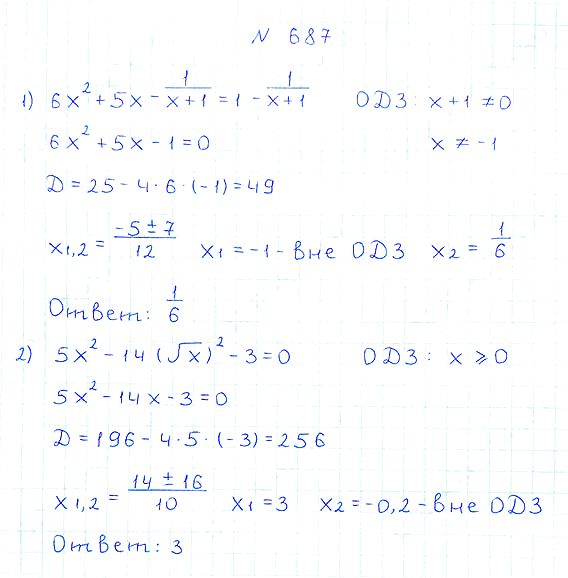 N 687
1) 6x² + 5x - 1/(x+1) = 1 - 1/(x+1) ОДЗ: x + 1 ≠ 0
6x² + 5x - 1 = 0 x ≠ -1
D = 25 - 4 · 6 · (-1) = 49
x1,2 = (-5 ± 7)/12 x1 = -1 - вне ОДЗ x2 = 1/6
Ответ: 1/6
2) 5x² - 14(√x)² - 3 = 0 ОДЗ: x ⩾ 0
5x² - 14x - 3 = 0
D = 196 - 4·5·(-3) = 256
x1,2 = (14 ± 16)/10 x1 = 3 x2 = -0,2 - вне ОДЗ
Ответ: 3